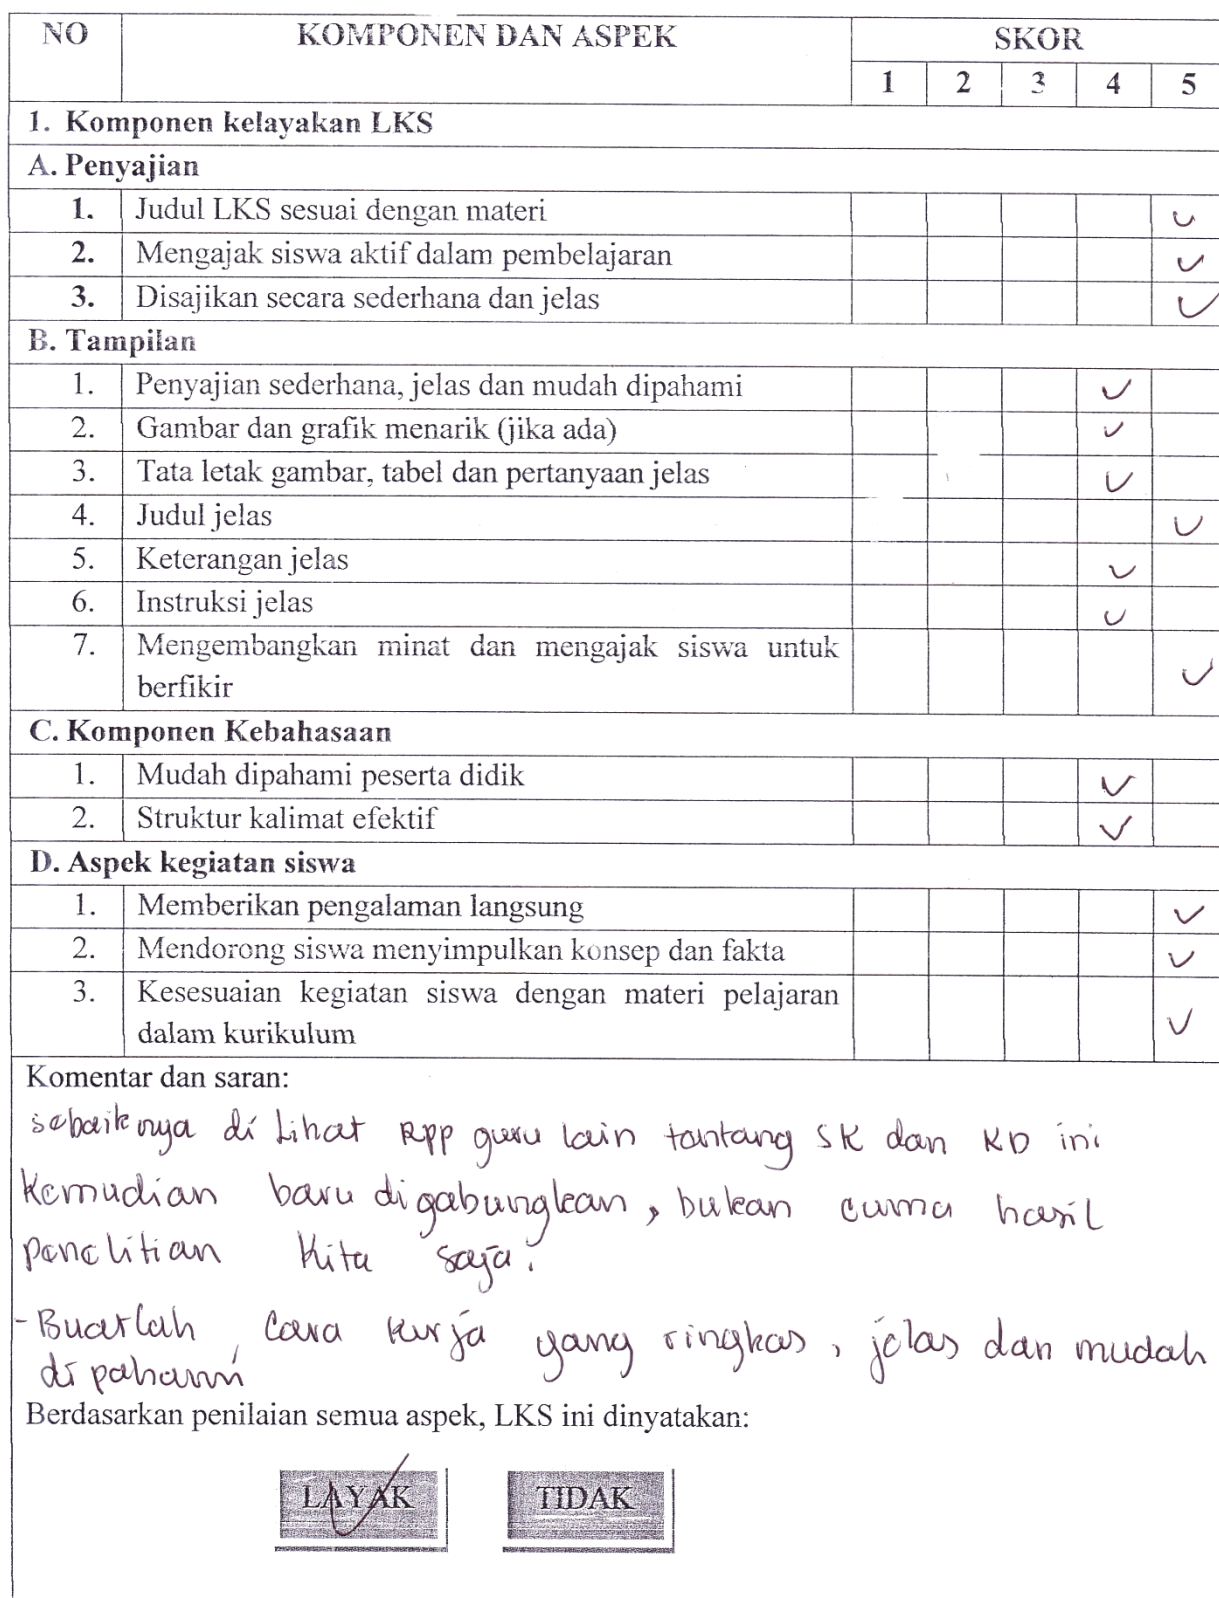 NO KOMPONEN DAN ASPEK SKOR
1 2 3 4 5
1. Komponen kelayakan LKS
A. Penyajian
1. Judul LKS sesuai dengan materi ✓
2. Mengajak siswa aktif dalam pembelajaran ✓
3. Disajikan secara sederhana dan jelas ✓
B. Tampilan
1. Penyajian sederhana, jelas dan mudah dipahami ✓
2. Gambar dan grafik menarik (jika ada) ✓
3. Tata letak gambar, tabel dan pertanyaan jelas ✓
4. Judul jelas ✓
5. Keterangan jelas ✓
6. Instruksi jelas ✓
7. Mengembangkan minat dan mengajak siswa untuk
berfikir ✓
C. Komponen Kebahasaan
1. Mudah dipahami peserta didik ✓
2. Struktur kalimat efektif ✓
D. Aspek kegiatan siswa
1. Memberikan pengalaman langsung ✓
2. Mendorong siswa menyimpulkan konsep dan fakta ✓
3. Kesesuaian kegiatan siswa dengan materi pelajaran
dalam kurikulum ✓
Komentar dan saran:
sebaiknya di Lihat RPP guru lain tentang SK dan KD ini
Kemudian baru digabungkan, bukan cuma hasil
penelitian Kita saja.
- Buatlah cara kerja yang ringkas, jelas dan mudah
di pahami
Berdasarkan penilaian semua aspek, LKS ini dinyatakan:
LAYAK TIDAK